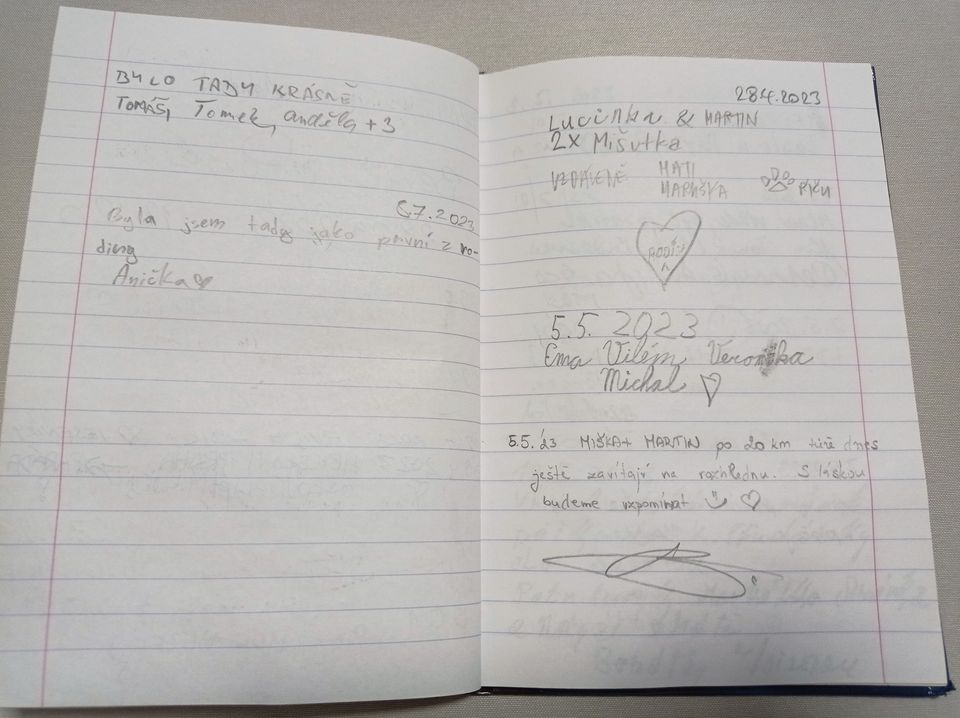 BYLO TADY KRÁSNĚ
TOMÁŠ, Tomek, anděla +3
6.7.2023
Byla jsem tady jako první z ro-
diny
Anička ♡
28.4.2023
Lucinka & MARTIN
2X Mišutka
VZDÁLENĚ MATI
MARUŠKA
5.5. 2023
Ema Vilém Veronika
Michal ♡
5.5.'23 MIŠKA + MARTIN po 20 km túře dnes
ještě zavítají na rozhlednu. S láskou
budeme vzpomínat